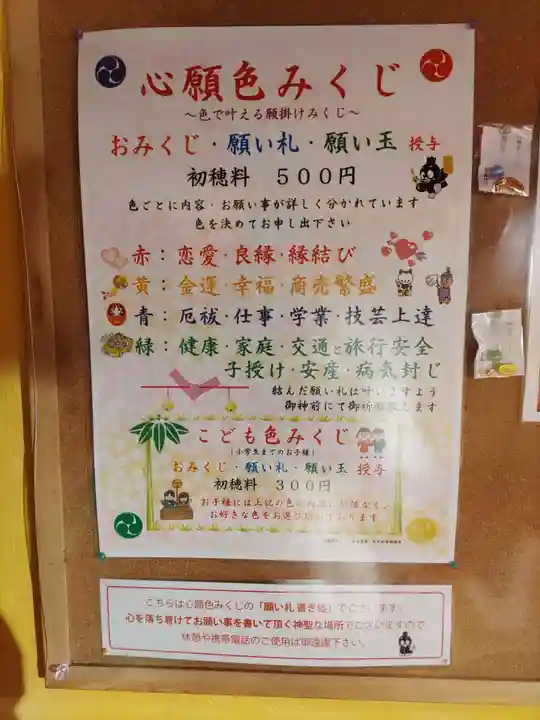 心願色みくじ
～色で叶える願掛けみくじ～
おみくじ・願い札・願い玉 授与
初穂料 500円
色ごとに内容・お願い事が詳しく分かれています
色を決めてお申し出下さい
赤：恋愛・良縁・縁結び
黄：金運・幸福・商売繁盛
青：厄祓・仕事・学業・技芸上達
緑：健康・家庭・交通と旅行安全
子授け・安産・病気封じ
結んだ願い札は叶いますよう
御神前にて御祈
します
こども色みくじ
(小学生までのお子様)
おみくじ・願い札・願い玉 授与
初穂料 300円
お子様には上記の色の内容に関係なく、
お好きな色をお選び頂いております
こちらは心願色みくじの「願い札 書き処」でございます。
心を落ち着けてお願い事を書いて頂く神聖な場所でございますので
休憩や携帯電話のご使用は御遠慮下さい。